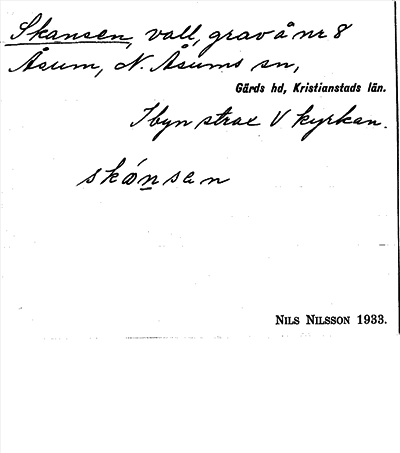 Skansen, vall, grav å nr 8
Åsum, N. Åsums sn,
Gärds hd, Kristianstads län.
I byn strax V kyrkan.
skánsen
NILS NILSSON 1933.